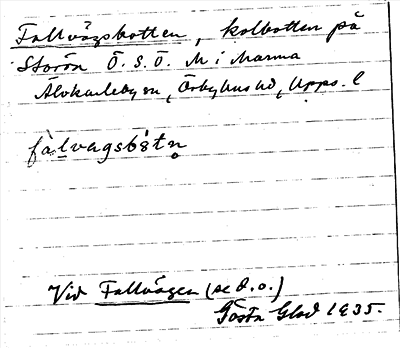 Fallvägsbotten, kolbotten på
Storön Ö.S.Ö. M i Marma
Älvkarleby sn, Örbyhus hd, Upps. l
fàlvagsbòtn̥
Vid Fallvägen (se d.o.)
Gösta Glad 1935.